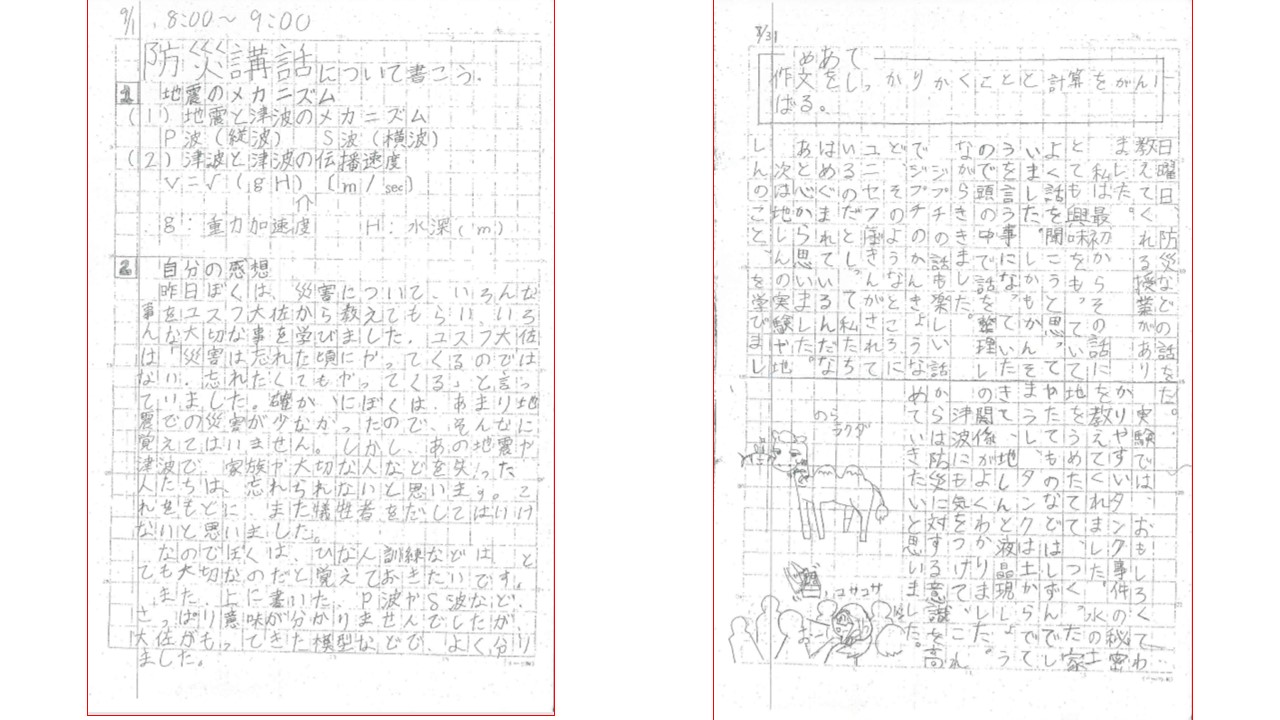 9/1 . 8:00～9:00
防災講話について書こう.
1 地震のメカニズム
(1) 地震と津波のメカニズム
P波(縦波) S波(横波)
(2) 津波と津波の伝播速度
V=√(gH) (m/sec)
g: 重力加速度 H: 水深(m)
2 自分の感想
昨日ぼくは、災害について、いろんな
事をユスフ大佐から教えてもらい、いろ
んな大切な事を学びました。ユスフ大佐
は「災害は忘れた頃にやってくるのでは
ない。忘れたくてもやってくる」と言っ
ていました。確かにぼくは、あまり地
震での災害が少なかったので、そんなに
覚えてはいません。しかし、あの地震や
津波で、家族や大切な人などを失った
人たちは、忘れられないと思います。こ
れをもとに、また犠牲者をだしてはいけ
ないと思いました。
なのでぼくは、ひなん訓練などは、と
ても大切なのだと覚えておきたいです。
また、上に書いた、P波やS波など、
さっぱり意味が分かりませんでしたが、
大佐がもってきた模型などで、よく分り
ました。
8/31
めあて
作文をしっかりかくことと計算をがん
ばる。
日曜日、防災などの話を
教えてくれる授業があり
ました。
私は最初からその話に
とても興味をもっていて
よく話を聞こうと思って
いました。しかもかんそ
うを言う事になっていた
ので頭の中で話を整理し
ながらききました。
ジブチの話も楽しい話
でジブチのかんきょうな
どそのようなところに
ユニセフほきんがされて
いるのだとしって私たち
はめぐまれているんだな
あと心から思いました。
次は地しんの実験や地
しんのことを学びまし
た。
実験では、おもしろくてわ
かりやすいタンク事件の秘密
を教えてくれました。水の土
地をうめたてて、つくった家
やたてものなどはしずんでし
まうし、タンクは土からでて
きて、地しんと液晶現しょう
の関係がよくわかりました。
津波にも気をつけて、これ
からは防災に対する意識を高
めていきたいと思いました。
のら
ラクダ
ユサユサ